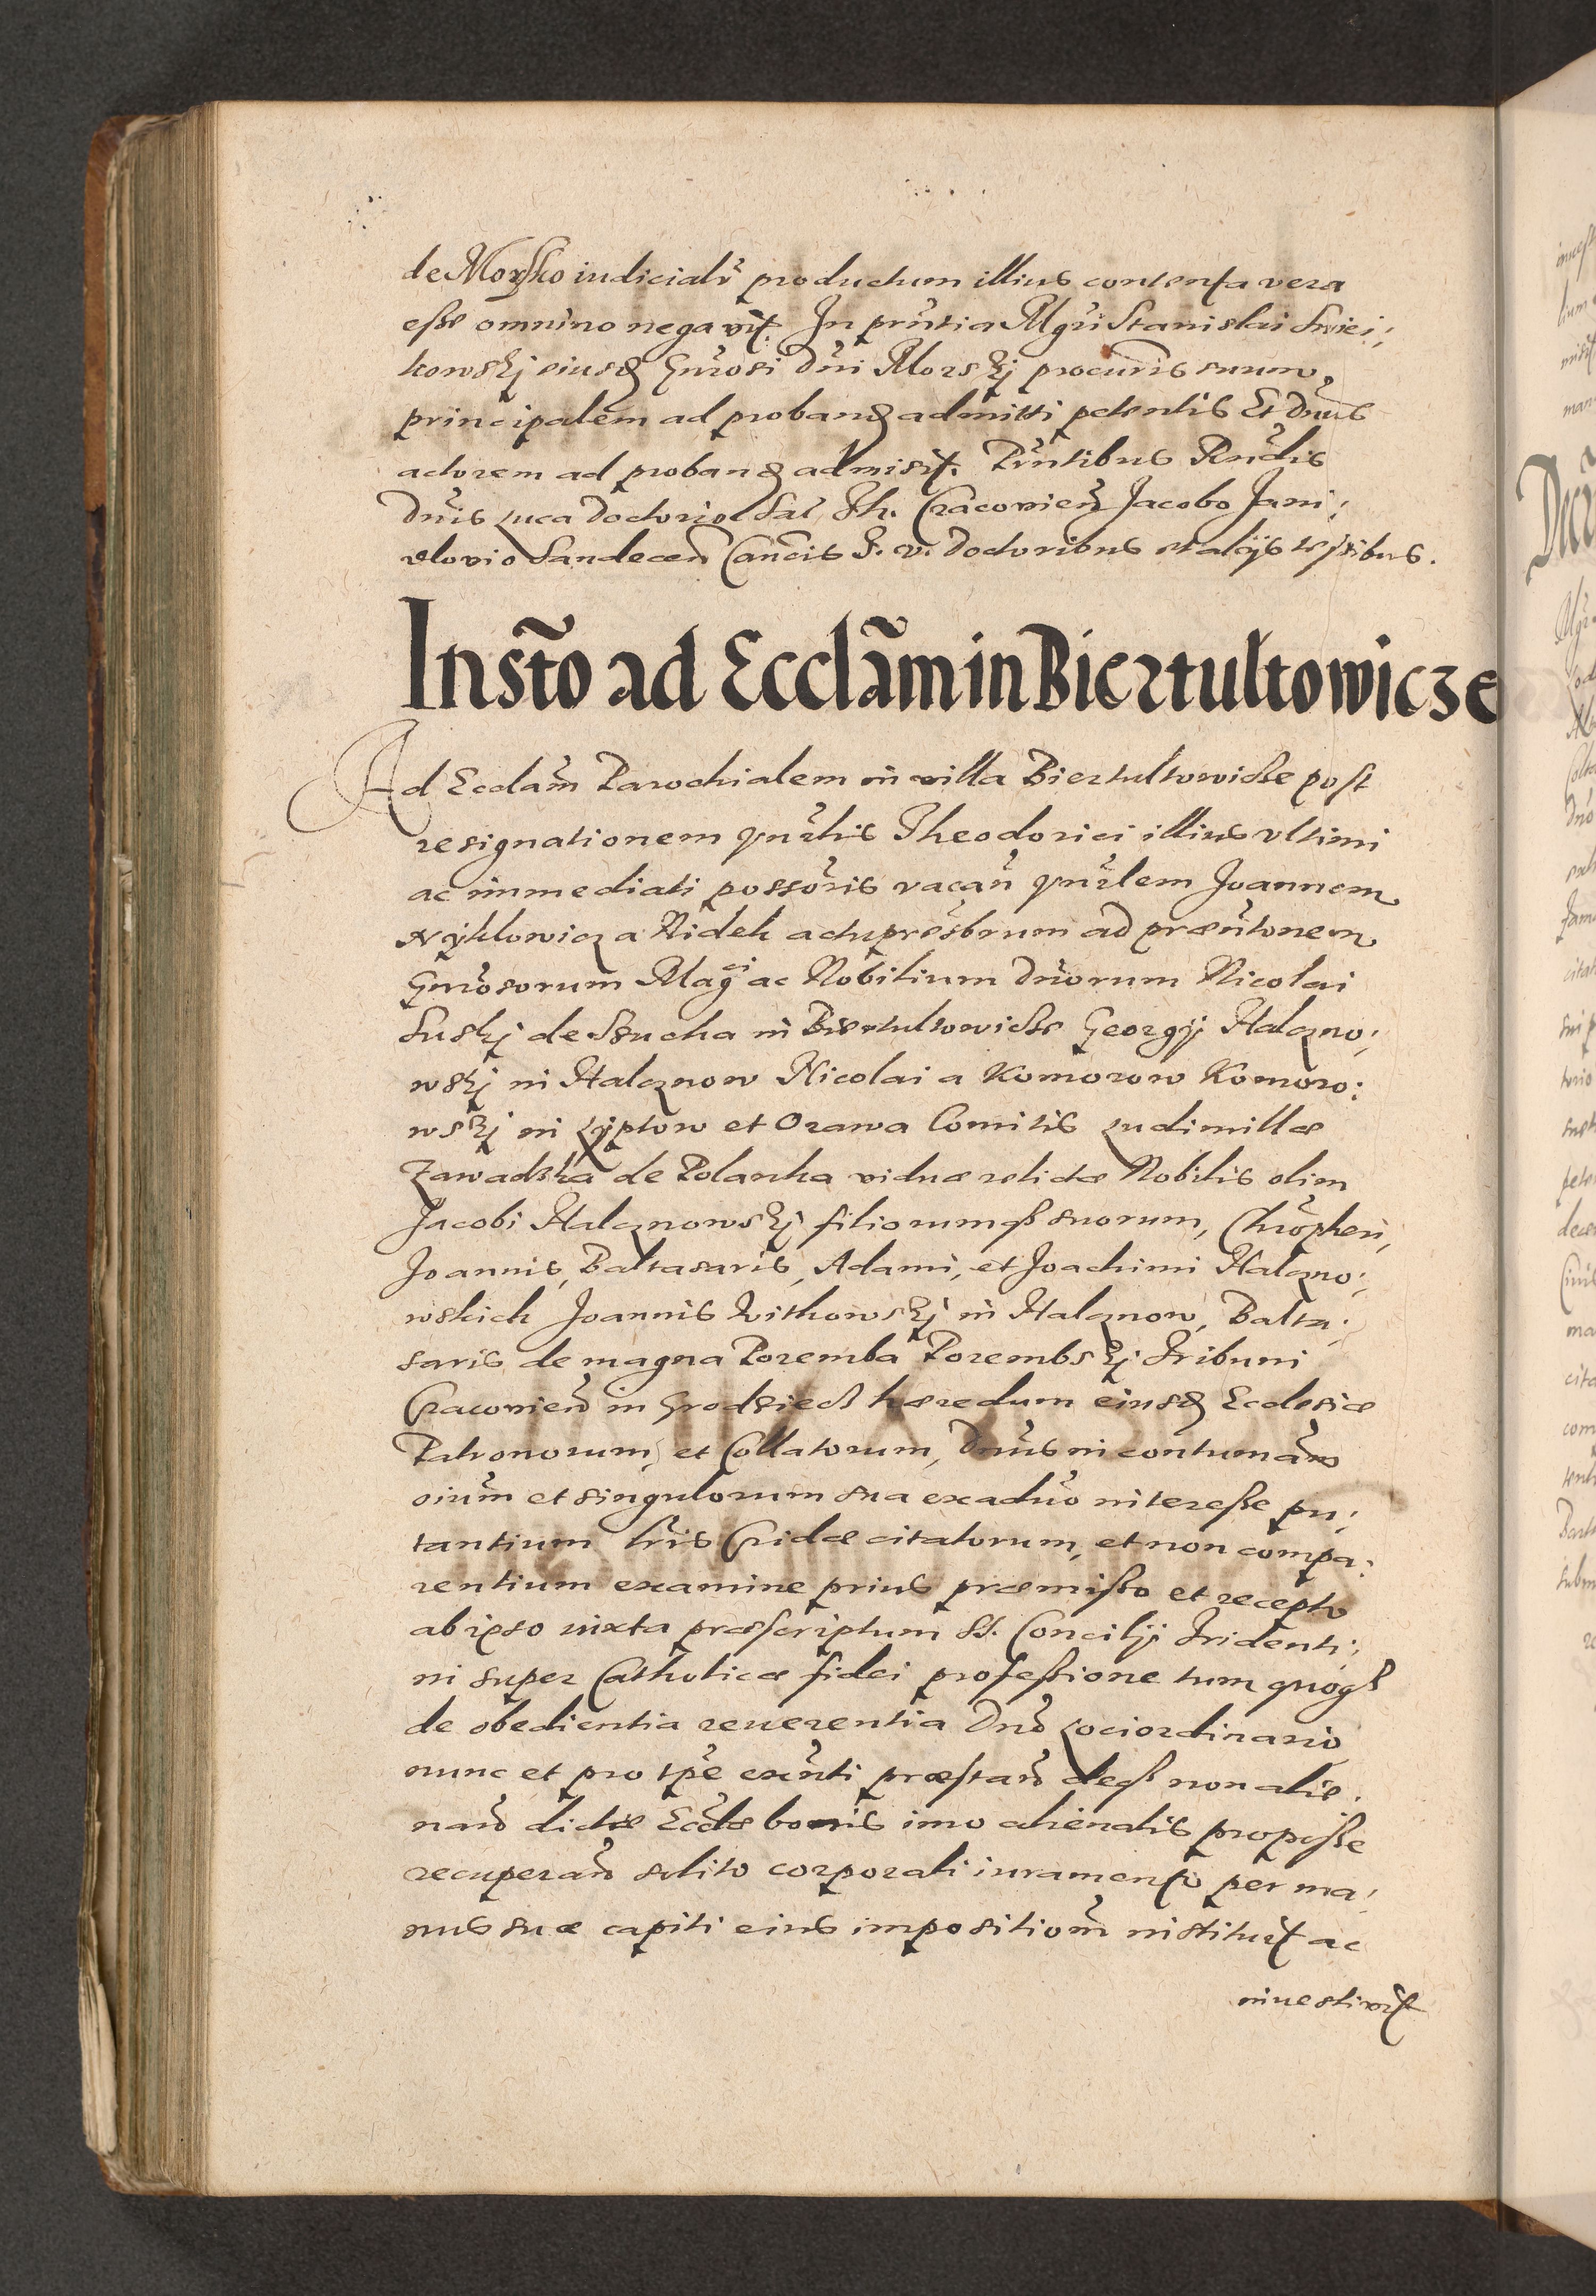 de Morsko iudicialr̃ productum illius contenta vera
esse omnino negavit. In prñtia Mgri Stanislai Swiei:
kowskj eiusđ Gnrosi Dñi Morskj procuris suum
principalem ad probanđ admitti petentis Et Dnus
actorem ad probanđ admisit. Prñtibus Rndis
Dnis Luca Doctorio Sac. Th. Cracovieñ Jacobo Jani:
dlovio Sandeceñ Cancis I. v. Doctoribus et alijs testibus.
Insto ad Ecclam in Biertultowicze
Ad Ecclam Parochialem in villa Biertultowicze post
resignationem hnrlis Theodorici illius vltimi
ac immediati possoris vacañ hnrlem Joannem
Nyklowicz a Nidek actu presbrum ad præntonem
Gnrosorum Magci ac Nobilium Dnorum Nicolai
Suskj de Sucha in Biertultowicze Georgij Halczno:
wskj in Halcznow Nicolai a Komorow Komoro:
wskj in Lyptow et Orawa Comitis Ludimillæ
Zawadska de Polanka viduæ relictæ Nobilis olim
Jacobi Halcznowskj filiorumq3 suorum, Chrõpheri,
Joannis, Baltasaris, Adami, et Joachimi Halczno:
wskich Joannis Withowskj in Halcznow, Balta:
saris de magna Poremba Porembskj Tribuni
Cracovieñ in Grodziecz hæredum eiusđ Ecclesiæ
Patronorum, et Collatorum, Dnus in contumam
oium et singulorum sua exaduo interesse pu:
tantium lris Cridæ citatorum, et non compa:
rentium examine prius præmisso et recepto
ab ipso iuxta præscriptum SS. Concilij Tridenti:
ni super Catholicæ fidei professione tum quoq3
de obedientia reuerentia Dno Lociordinario
nunc et pro tpe exñti præstanđ deq3 non alie:
nanđ dictæ Eccłæ bonis imo alienatis pro posse
recuperanđ solito corporali iuramento per ma:
nus suæ capiti eius impositiom instituit ac
inuestiuit